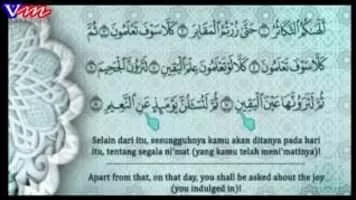 Vm
أَلْهَىٰكُمُ ٱلتَّكَاثُرُ ۝ حَتَّىٰ زُرْتُمُ ٱلْمَقَابِرَ ۝ كَلَّا سَوْفَ تَعْلَمُونَ ۝ ثُمَّ
كَلَّا سَوْفَ تَعْلَمُونَ ۝ كَلَّا لَوْ تَعْلَمُونَ عِلْمَ ٱلْيَقِينِ ۝ لَتَرَوُنَّ ٱلْجَحِيمَ ۝
ثُمَّ لَتَرَوُنَّهَا عَيْنَ ٱلْيَقِينِ ۝ ثُمَّ لَتُسْـَٔلُنَّ يَوْمَئِذٍ عَنِ ٱلنَّعِيمِ ۝
Selain dari itu, sesungguhnya kamu akan ditanya pada hari
itu, tentang segala ni'mat (yang kamu telah meni'matinya)!
Apart from that, on that day, you shall be asked about the joy
(you indulged in)!